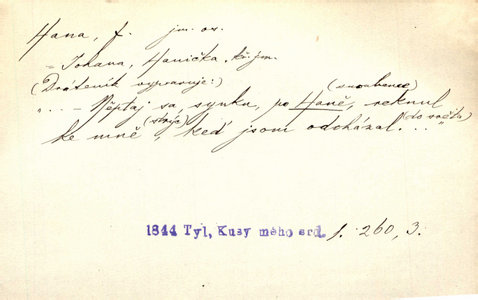 Hana, f. jm. os.
- Johana, Hanička, kř. jm.
(Dráteník vypravuje:)
(snoubence)
"... - Neptaj sa, synku, po Haně, reknul
ke mně (strýc), keď jsem odcházal (do světa)..."
1844 Tyl, Kusy mého srd. 1. 260, 3.